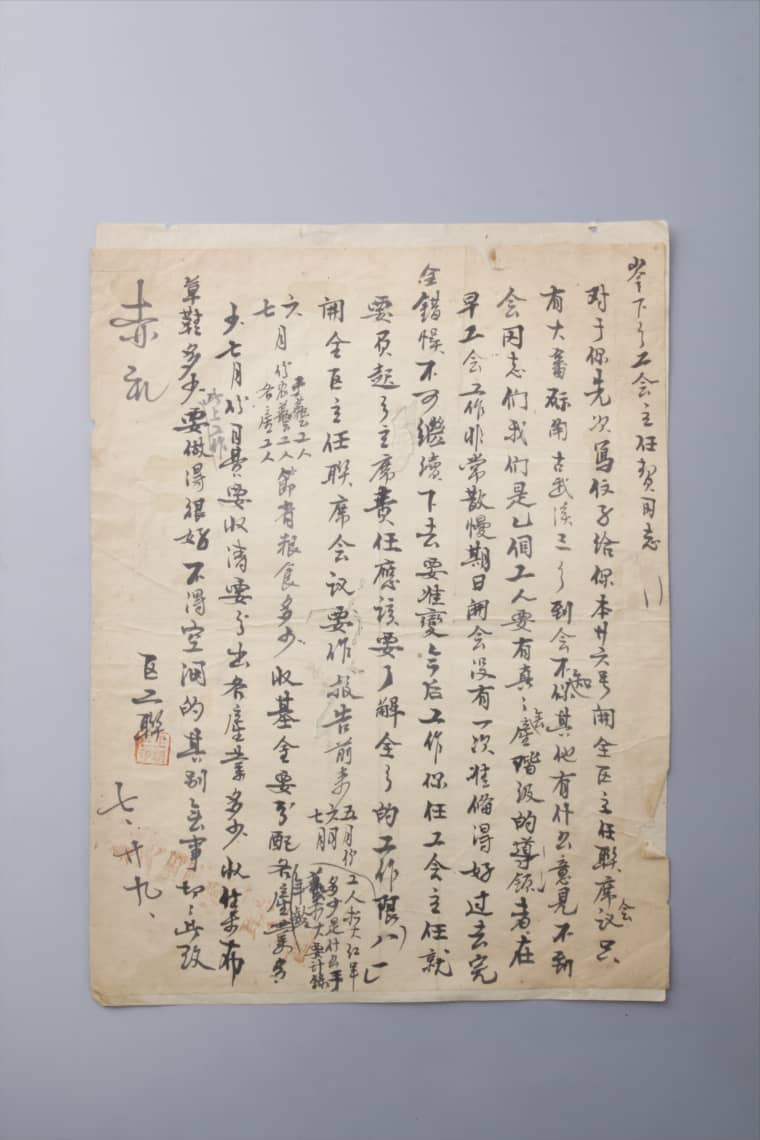 下乡工会主任贺同志
对于你先次写信子给你本廿六号开全区主任联席会议只
有大畲砾南古武溪三乡到会不知你其他有什么意见不到
会同志们我们是乙个工人要有真真产阶级的导领者在
早工会工作非常散慢期日开会没有一次准备得好过去完
全错悮不可继续下去要准变今后工作你任工会主任就
要负起乡主席责任应该要了解全乡的工作限八一
开全区主任联席会议要作报告前来五月份六月七月工人扩大红军多少是什么手艺扩大要计录年龄
六七月份手艺工人农艺工人各产工人节省粮食多少收基金要分配各产业各
少七月份月费要收清要分出各产业多少收朱布
草鞋多少以上工作要做得很好不得空洞的其别无事切切此致
赤礼
区工联
七、廿九、